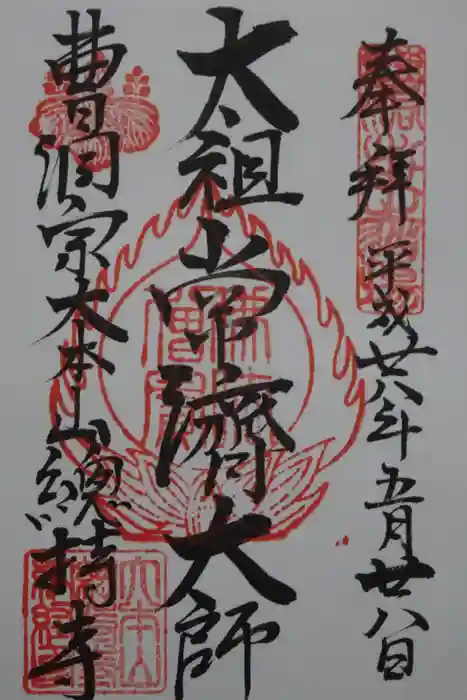 奉拝 平成廿八年五月廿八日
太祖常濟大師
曹洞宗大本山總持寺